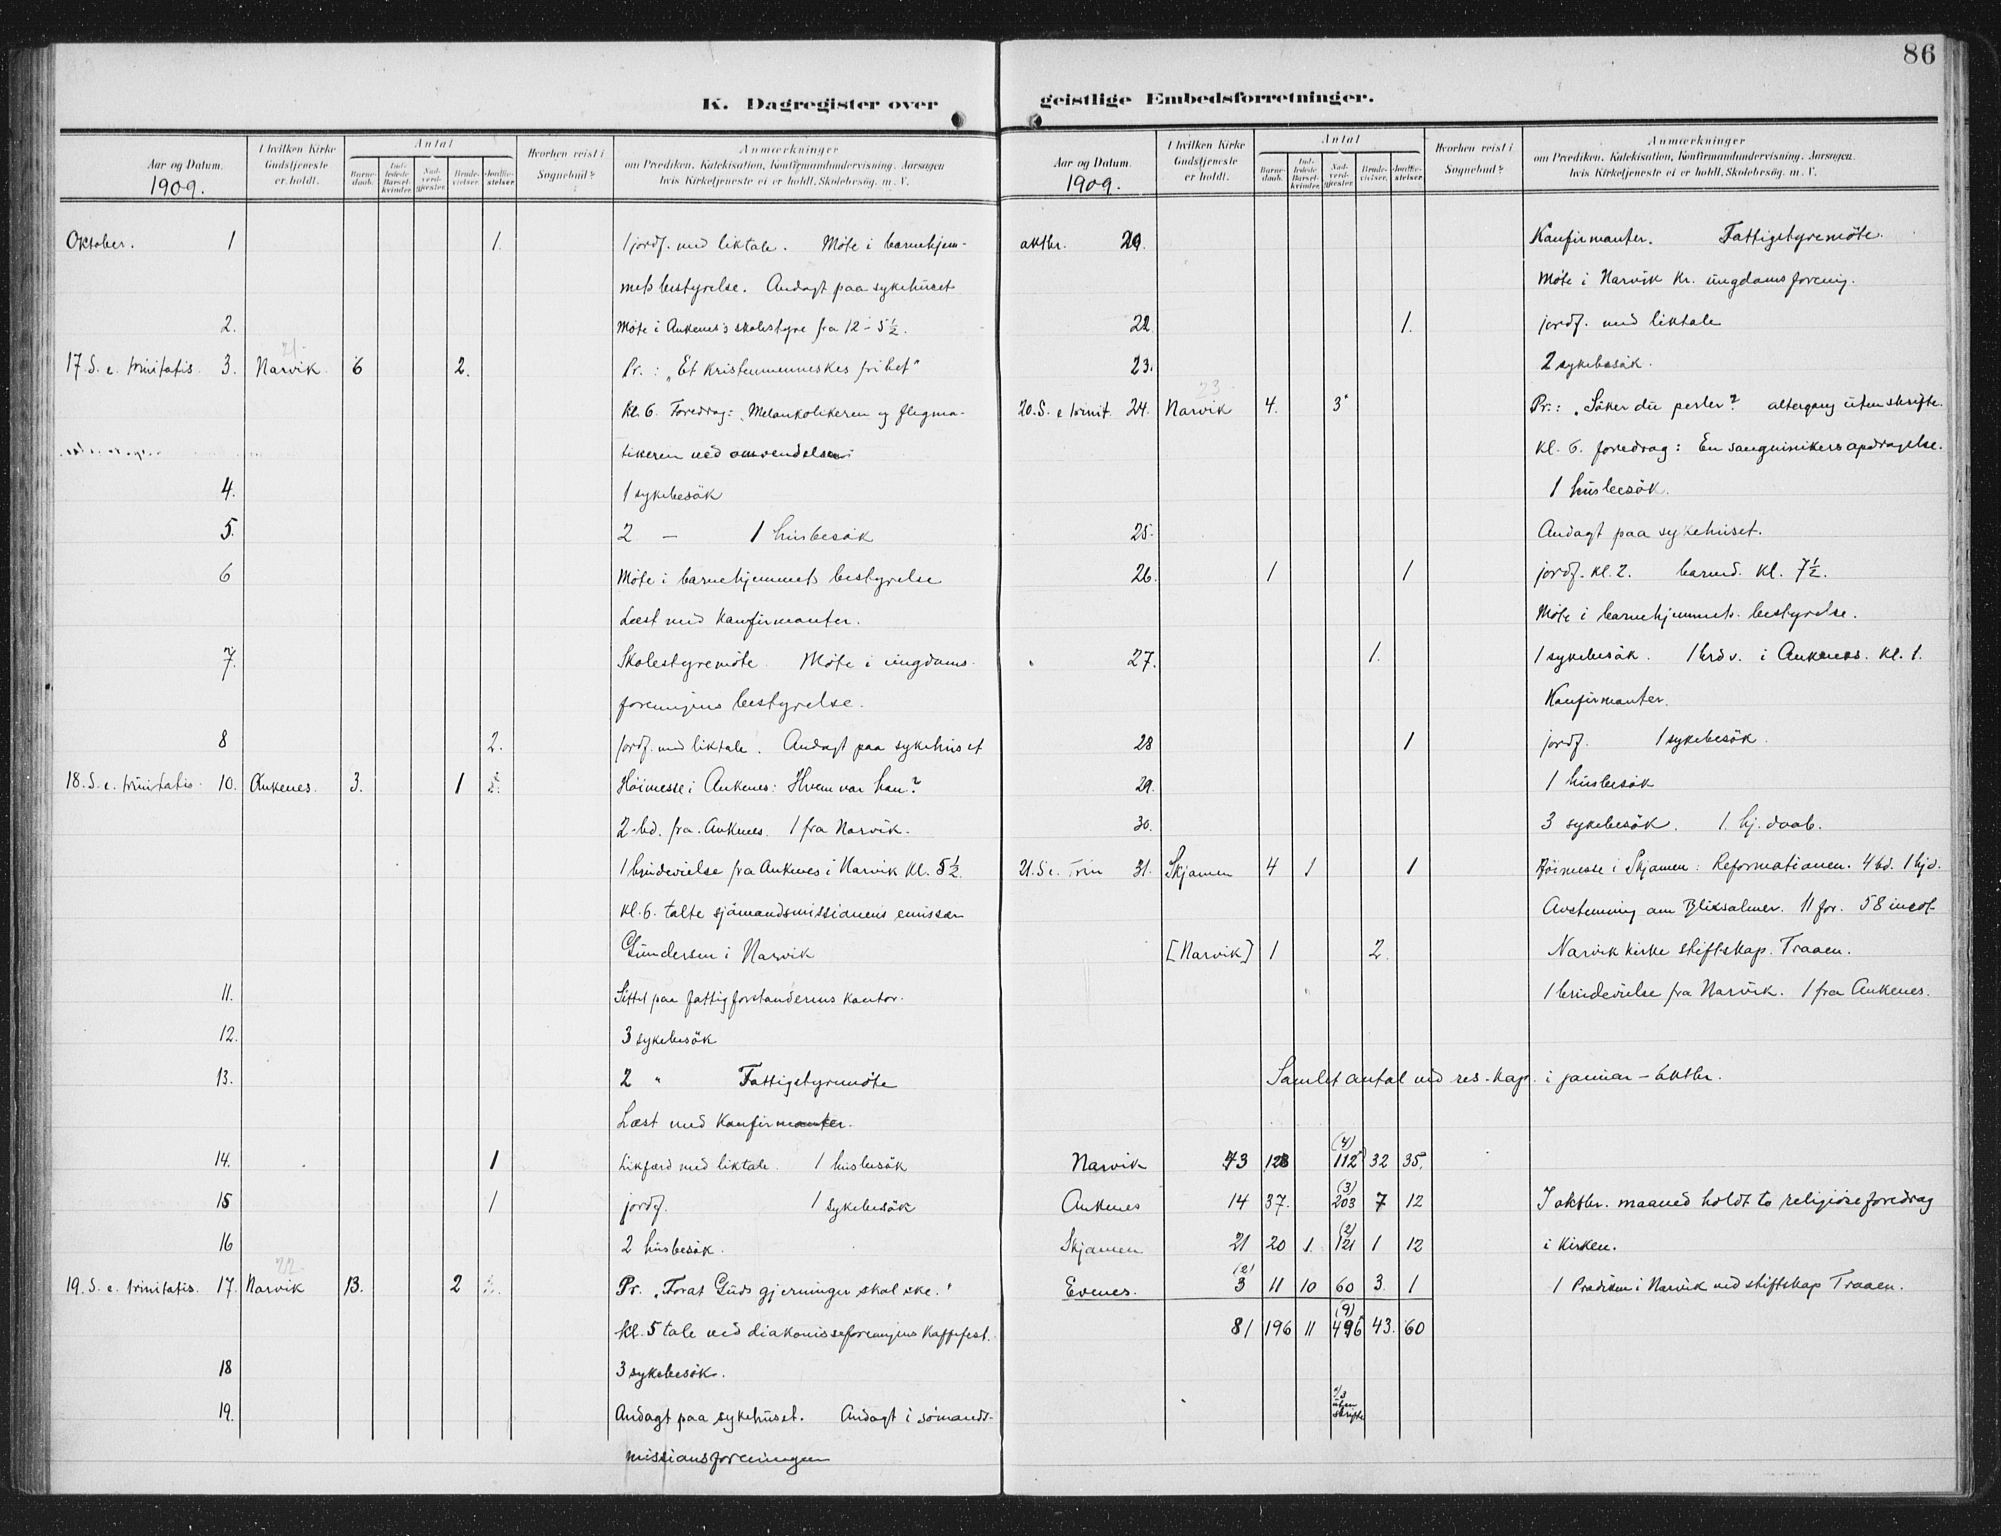 86
K. Dagregister over geistlige Embedsforretninger.
Aar og Datum. 1909.
I hvilken Kirke Gudstjeneste er holdt.
Antal
Barnedaab.
Indledede Barselkvinder.
Nadverdgjester.
Brudevielser.
Jordfæstelser.
Hvorhen reist i Sognebud?
Anmærkninger
om Prædiken, Katekisation, Konfirmandundervisning. Aarsagen
hvis Kirketjeneste ei er holdt, Skolebesøg. m. V.
Oktober. 1 1. 1 jordf. med liktale. Møte i barnehjem-
mets bestyrelse. Andagt paa sykehuset
2. Møte i Ankenes's skolestyre fra 12 - 5 1/2.
21
17. S. e. trinitatis. 3. Narvik 6 2. Pr.: "Et kristenmenneskes frihet"
Kl. 6. Foredrag: Melankolikeren og flegma-
tikeren ved omvendelsen
4. 1 sykebesök
5. 2 — 1 husbesök
6 Møte i barnehjemmets bestyrelse
Læst med Konfirmanter.
7. Skolestyremöte. Möte i ungdoms-
foreningens bestyrelse.
8 2. jordf. med liktale. Andagt paa sykehuset
18. S. e. trinitatis. 10. Ankenes. 3. 1 Höimesse i Ankenes: Hvem var han?
2 bd. fra Ankenes. 1 fra Narvik.
1 brudevielse fra Ankenes i Narvik kl. 5 1/2.
Kl. 6. talte sjömandsmissionens emissær
Gundersen i Narvik
11. Sittet paa fattigforstanderens kontor.
12. 3 sykebesök
13. 2 " Fattigstyremöte
Læst med Konfirmanter.
14. 1 Likfærd med liktale. 1 husbesök
15 1 jordf. 1 sykebesök
16 2 husbesök.
22
19. S. e. trinitatis. 17. Narvik 13. 2 Pr. "Forat Guds gjerninger skal ske."
kl. 5 tale ved diakonisseforeningens kaffefest.
18 3 sykebesök.
19. Andagt paa sykehuset. Andagt i sömands-
missionsforeningen
Aar og Datum. 1909.
I hvilken Kirke Gudstjeneste er holdt.
Antal
Barnedaab.
Indledede Barselkvinder.
Nadverdgjester.
Brudevielser.
Jordfæstelser.
Hvorhen reist i Sognebud?
Anmærkninger
om Prædiken, Katekisation, Konfirmandundervisning. Aarsagen
hvis Kirketjeneste ei er holdt, Skolebesøg. m. V.
oktbr. Konfirmanter. Fattigstyremöte.
Möte i Narvik Kr. ungdomsforening.
22. 1. jordf. med liktale
23. 2 sykebesök.
23
20. S. e trinit. 24. Narvik 4. 3 Pr.: "Söker du perler? altergang uten skrifte.
Kl. 6. foredrag: En sangvinikers opdragelse.
1 husbesök.
25. Andagt paa sykehuset.
26. 1 1 jordf. kl. 2. barned. kl. 7 1/2.
Möte i barnehjemmets bestyrelse.
27. 1. 1 sykebesök. 1 brdv. i Ankenes. kl. 1.
Konfirmanter.
28 1 jordf. 1 sykebesök.
29. 1 husbesök
30. 3 sykebesök. 1. hj. daab.
21. S e. Trin 31. Skjomen 4 1 1 Höimesse i Skjomen: Reformationen. 4 bd. 1 hjd.
Avstemning om Blixsalmer. 11 for. 58 imot
[Narvik] 1 2. Narvik kirke stiftskap. Traaen.
1 brudevielse fra Narvik. 1 fra Ankenes.
Samlet antal ved res. kap. i januar - oktbr.
Narvik 73 128 (4) 112 32 35.
Ankenes 14 37. (3) 203 7 12 I oktbr. maaned holdt to religiöse foredrag
Skjomen 21 20 1. (2) 121 1 12 i kirken.
Evenes. (2) 3 11 10 60 3. 1 1 Prædiken i Narvik ved stiftskap Traaen.
81 196 11 (9) 496 43. 60
uten
skrifte